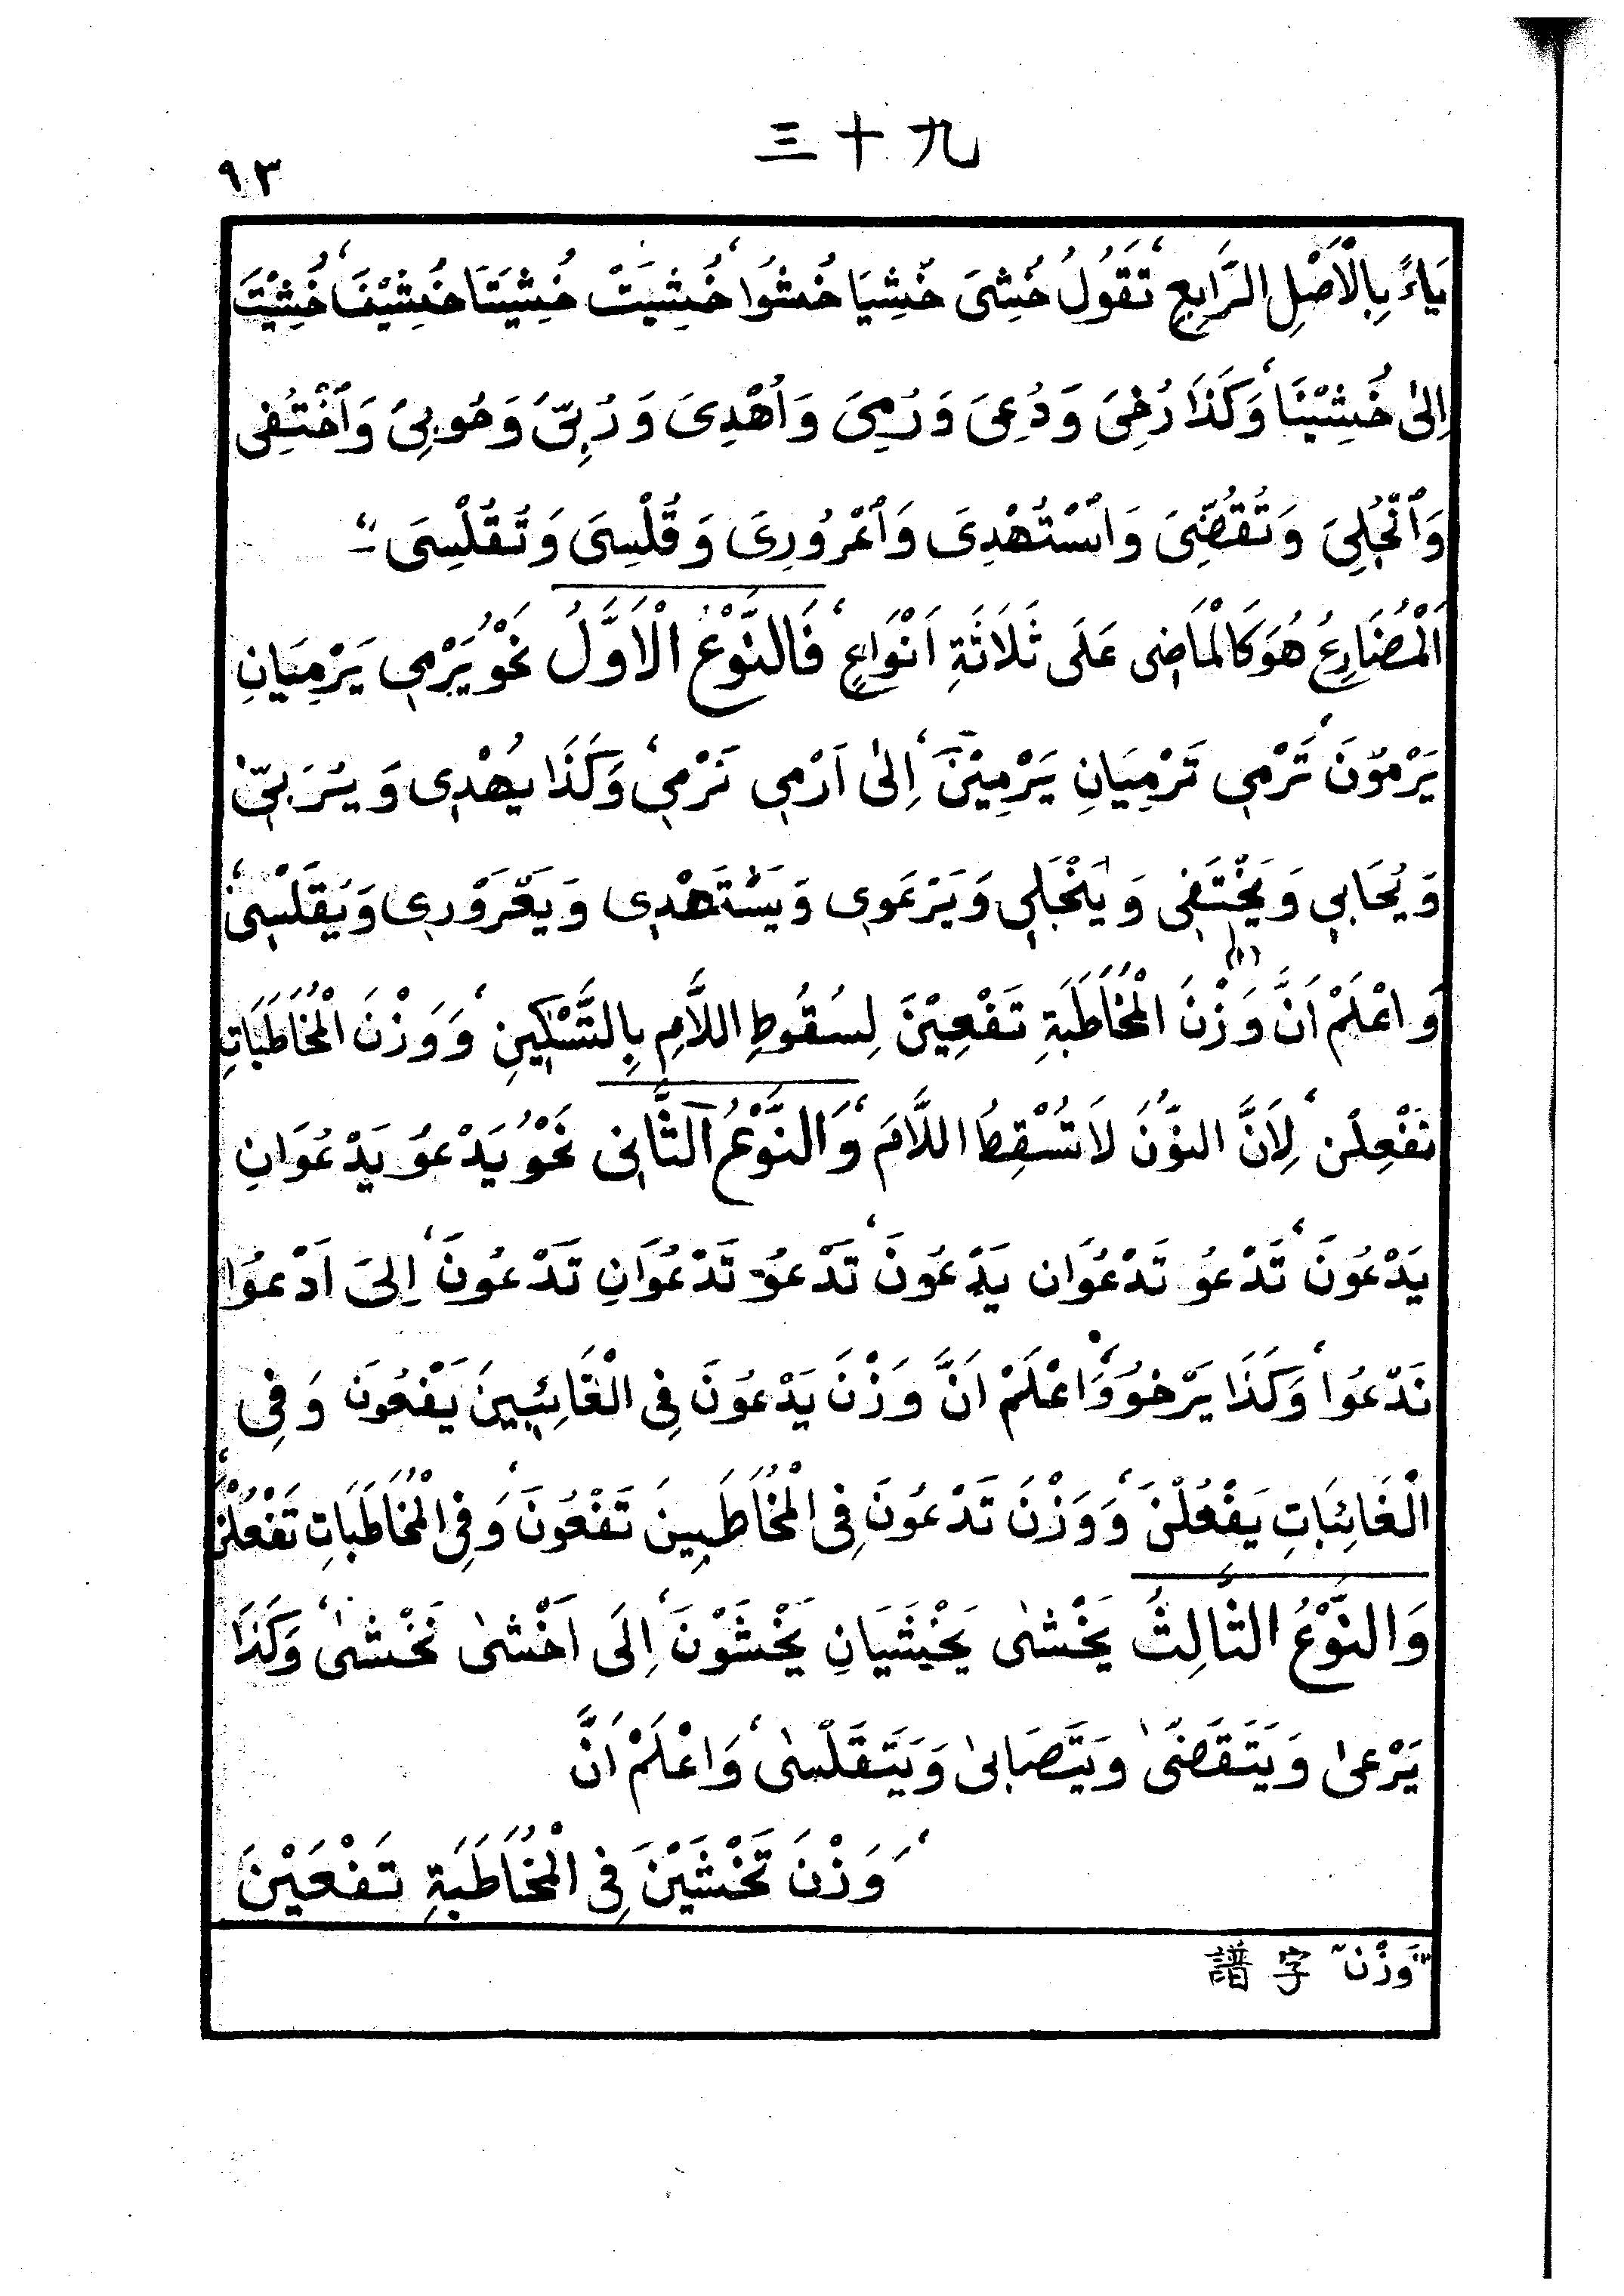 三十九
٩٣
يَاءً بِالْاَصْلِ الرَّابِعِ، تَقُولُ خُشِىَ خُشِيَا خُشُوا، خُشِيَتْ خُشِيَتَا خُشِيْنَ، خُشِيْتَ
اِلىٰ خُشِيْنَا، وَكَذَا رُخِىَ وَدُعِىَ وَرُمِىَ وَاُهْدِىَ وَرُبِّىَ وَحُوبِىَ وَاُخْتُفِى
وَاُنْجُلِىَ وَتُقُضِّىَ وَاسْتُهْدِىَ وَاُعْرُورِىَ وَقُلْسِىَ وَتُقُلْسِىَ
اَلْمُضَارِعُ هُوَ كَالْمَاضِى عَلَى ثَلَاثَةِ اَنْوَاعٍ، فَالنَّوْعُ الْاَوَّلُ نَحْوُ يَرْمِى يَرْمِيَانِ
يَرْمُونَ، تَرْمِى تَرْمِيَانِ يَرْمِيْنَ، اِلىٰ اَرْمِى نَرْمِى، وَكَذَا يُهْدِى وَيُرَبِّىْ
وَيُحَابِى وَيَخْتَفِى وَيَنْجَلِى وَيَرْعَوِى وَيَسْتَهْدِى وَيَعْرَوْرِى وَيُقَلْسِىْ،
(١)
وَاعْلَمْ اَنَّ وَزْنَ الْمُخَاطَبَةِ تَفْعِيْنَ لِسُقُوطِ اللَّامِ بِالتَّسْكِينِ، وَوَزْنَ الْمُخَاطَبَاتِ
تَفْعِلْنَ، لِاَنَّ النُّونَ لَا تُسْقِطُ اللَّامَ، وَالنَّوْعُ الثَّانِى نَحْوُ يَدْعُو يَدْعُوَانِ
يَدْعُونَ، تَدْعُو تَدْعُوَانِ يَدْعُونَ، تَدْعُو تَدْعُوَانِ تَدْعُونَ، اِلىَ اَدْعُوا
نَدْعُوا، وَكَذَا يَرْخُو، وَاعْلَمْ اَنَّ وَزْنَ يَدْعُونَ فِى الْغَائِبِينَ يَفْعُونَ وَفِى
الْغَائِبَاتِ يَفْعُلْنَ، وَوَزْنَ تَدْعُونَ فِى الْمُخَاطَبِينَ تَفْعُونَ، وَفِى الْمُخَاطَبَاتِ تَفْعُلْنَ،
وَالنَّوْعُ الثَّالِثُ يَخْشىٰ يَخْشَيَانِ يَخْشَوْنَ، اِلَى اَخْشىٰ نَخْشىٰ، وَكَذَا
يَرْعىٰ وَيَتَقَضّىٰ وَيَتَصَابىٰ وَيَتَقَلْسىٰ، وَاعْلَمْ اَنَّ
وَزْنَ تَخْشَيْنَ فِى الْمُخَاطَبَةِ تَفْعَيْنَ،
"وَزْن" 字譜